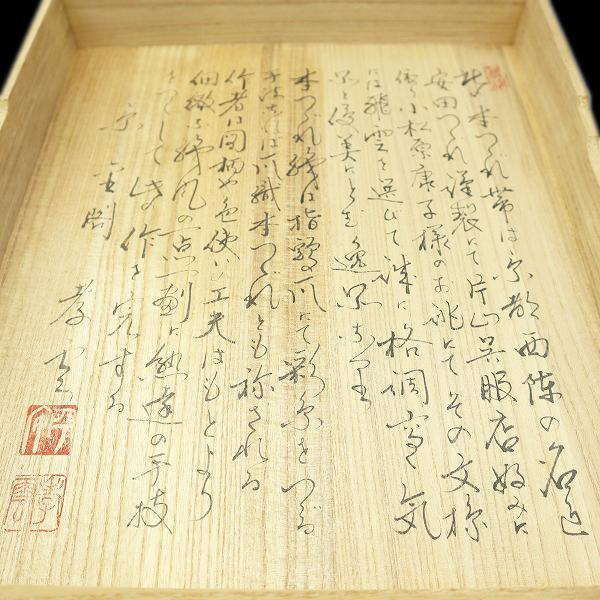 此本つづれ帯は京都西陣の名匠
安田つづれ謹製にて片山呉服店好みに
依り小松原康子様のお誂にてその文様
には飛雲を選びて誠に格調高く気
品と優美にとむ逸品なり
本つづれ織は指頭の爪にて彩糸をつづる
が故に爪織本つづれとも称される
作者は図柄や色使い工夫はもとより
細緻な織風の一点一劃に熟達の手技
をつくして此作を完する
京 雲閣
孝雲